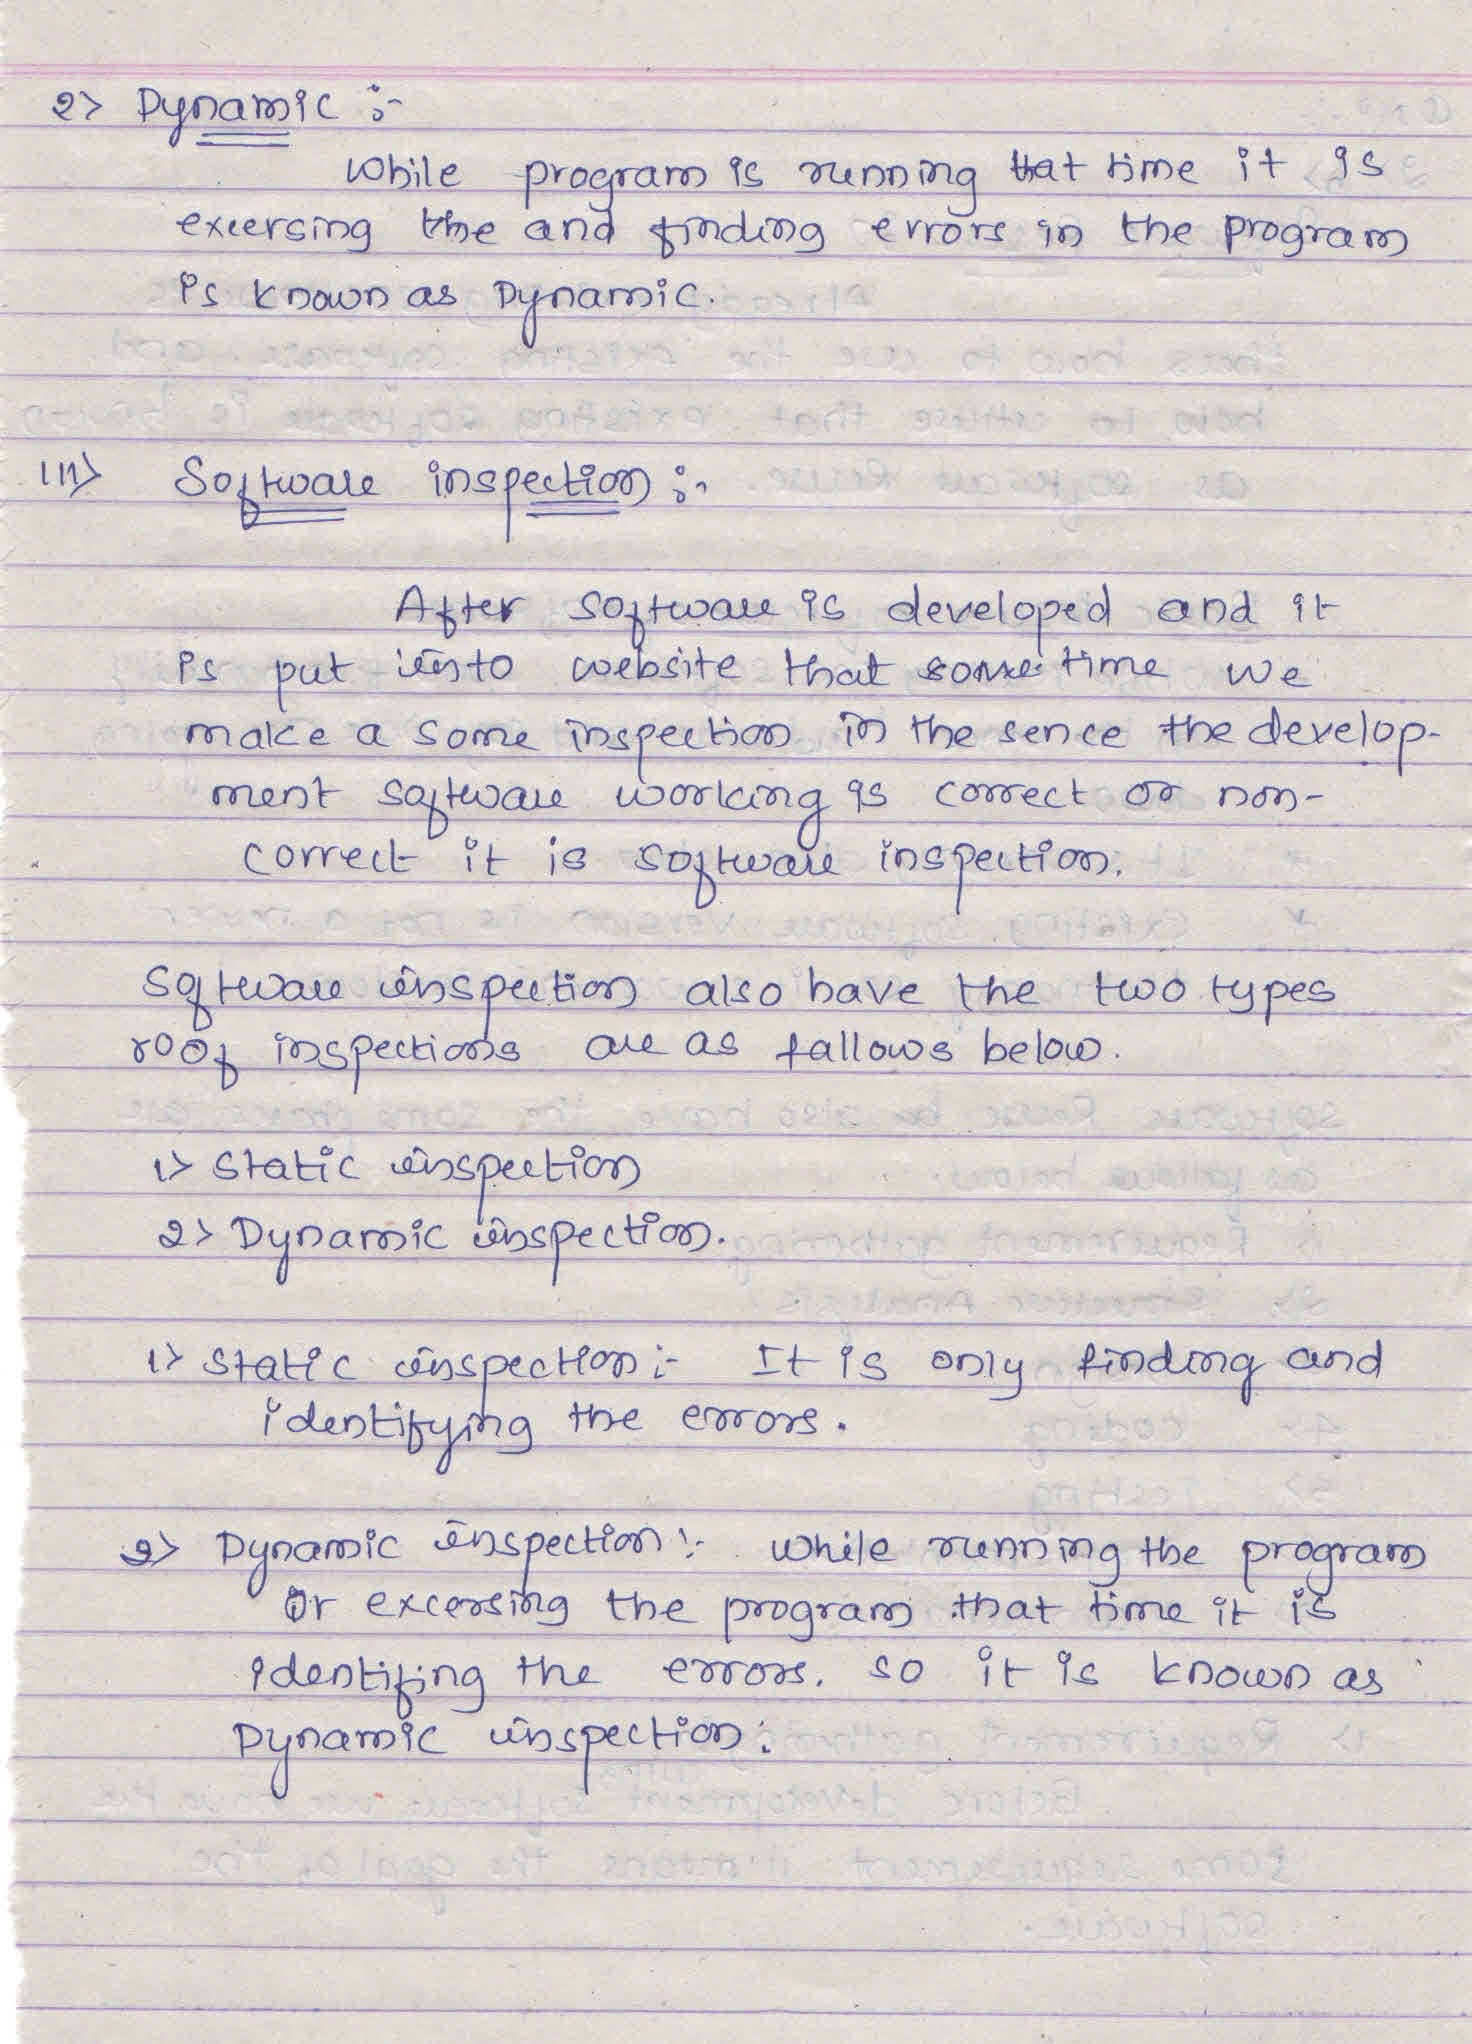 2> Dynamic :-
While program is running that time it is
excersing the and finding errors in the program
is known as Dynamic.
III> Software inspection :-
After software is developed and it
is put into website that some time we
make a some inspection in the sence the develop-
ment software working is correct or non-
correct it is software inspection.
Software inspection also have the two types
of inspections are as fallows below.
1> Static inspection
2> Dynamic inspection.
1> Static inspection :- It is only finding and
identifying the errors.
2> Dynamic inspection :- While running the program
or excersing the program that time it is
identifing the errors. so it is known as
Dynamic inspection.